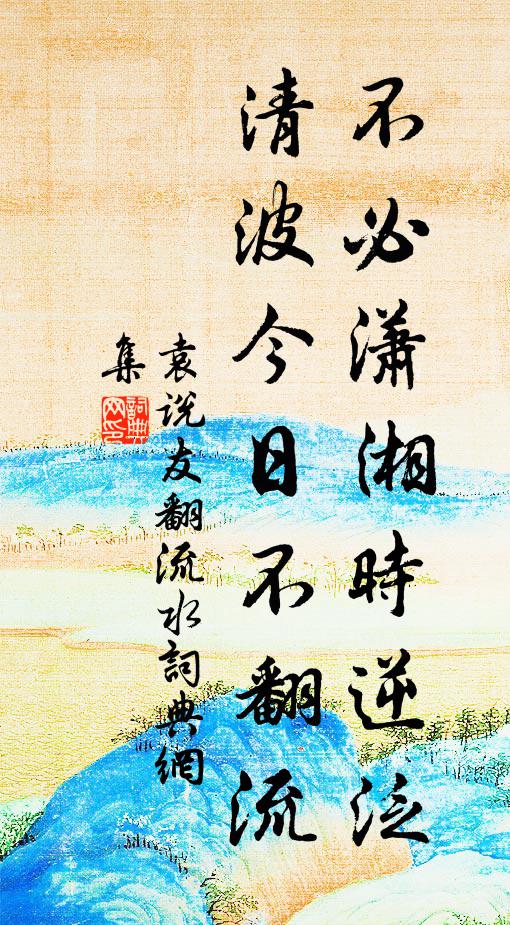 不必瀟湘時逆泛
清波今日不翻流
袁说友翻流水詞典網
集
詞典
网印